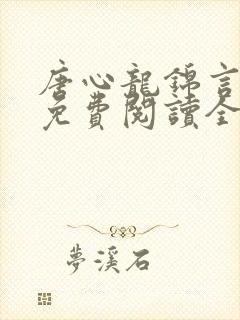 唐心龍錦言
免費閱讀全
夢溪石